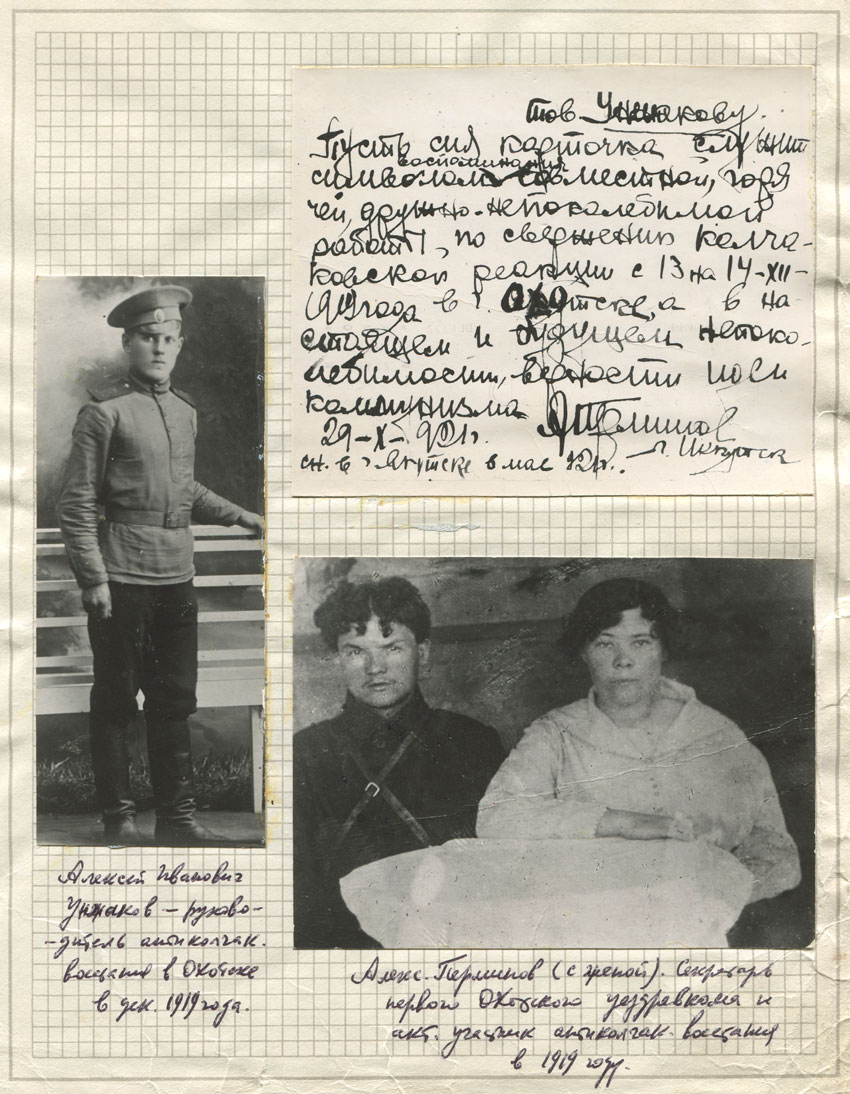 тов Унжакову.
Пусть сия карточка служит
воспоминания
символом совместной, горя
чей, дружно-непоколебимой
работы, по свержению колча-
ковской реакции с 13 на 14-XII-
1919 года в г. Охотске, а в на-
стоящем и будущем непоко-
лебимости, верности
коммунизма
29-X-921г.
г. Якутск
сн. в г. Якутске в мае 22г.
Алексей Иванович
Унжаков – руково-
-дитель антиколчак.
востания в Охотске
в дек. 1919 года.
Алекс. Перминов (с женой). Секретарь
первого Охотского уездревкома и
акт. участник антиколчак. востания
в 1919 году.